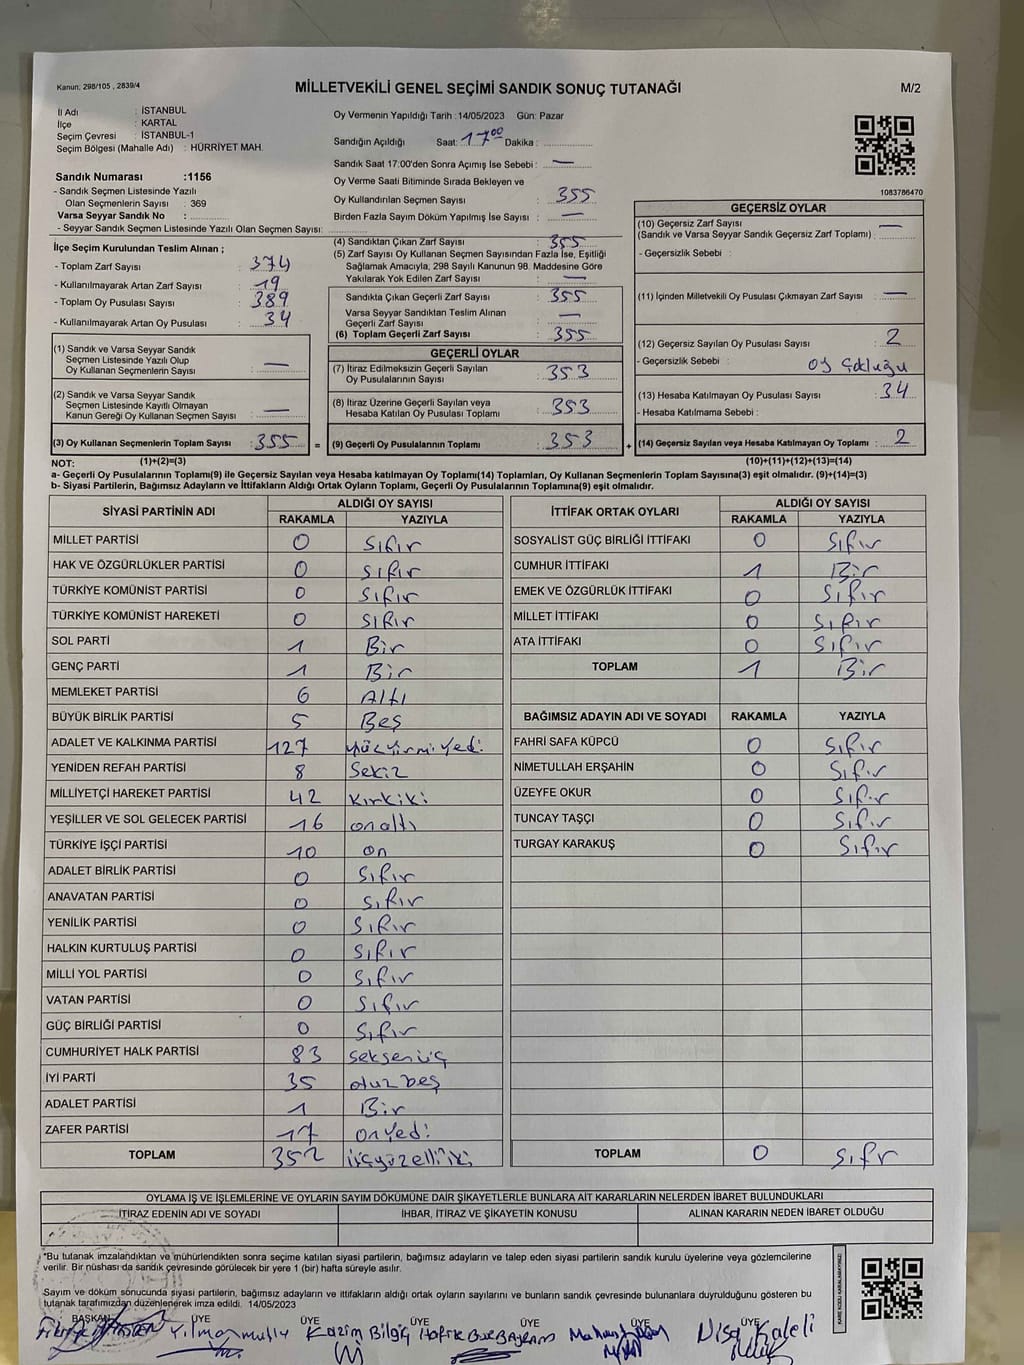 Kanun; 298/105 , 2839/4
MİLLETVEKİLİ GENEL SEÇİMİ SANDIK SONUÇ TUTANAĞI
M/2
İl Adı : İSTANBUL
İlçe : KARTAL
Seçim Çevresi : İSTANBUL-1
Seçim Bölgesi (Mahalle Adı) : HÜRRİYET MAH.
Sandık Numarası :1156
- Sandık Seçmen Listesinde Yazılı
Olan Seçmenlerin Sayısı : 369
Varsa Seyyar Sandık No :
- Seyyar Sandık Seçmen Listesinde Yazılı Olan Seçmen Sayısı:
Oy Vermenin Yapıldığı Tarih :14/05/2023 Gün: Pazar
Sandığın Açıldığı Saat: 17 00 Dakika :
Sandık Saat 17.00'den Sonra Açımış İse Sebebi : —
Oy Verme Saati Bitiminde Sırada Bekleyen ve
Oy Kullandırılan Seçmen Sayısı : 355
Birden Fazla Sayım Döküm Yapılmış İse Sayısı : —
1083786470
İlçe Seçim Kurulundan Teslim Alınan ;
- Toplam Zarf Sayısı : 374
- Kullanılmayarak Artan Zarf Sayısı : 19
- Toplam Oy Pusulası Sayısı : 389
- Kullanılmayarak Artan Oy Pusulası : 34
(1) Sandık ve Varsa Seyyar Sandık
Seçmen Listesinde Yazılı Olup
Oy Kullanan Seçmenlerin Sayısı : —
(2) Sandık ve Varsa Seyyar Sandık
Seçmen Listesinde Kayıtlı Olmayan
Kanun Gereği Oy Kullanan Seçmen Sayısı : —
(3) Oy Kullanan Seçmenlerin Toplam Sayısı : 355 =
(4) Sandıktan Çıkan Zarf Sayısı : 355
(5) Zarf Sayısı Oy Kullanan Seçmen Sayısından Fazla İse, Eşitliği
Sağlamak Amacıyla, 298 Sayılı Kanunun 98. Maddesine Göre
Yakılarak Yok Edilen Zarf Sayısı : —
Sandıkta Çıkan Geçerli Zarf Sayısı : 355
Varsa Seyyar Sandıktan Teslim Alınan
Geçerli Zarf Sayısı : —
(6) Toplam Geçerli Zarf Sayısı : 355
GEÇERLİ OYLAR
(7) İtiraz Edilmeksizin Geçerli Sayılan
Oy Pusulalarının Sayısı : 353
(8) İtiraz Üzerine Geçerli Sayılan veya
Hesaba Katılan Oy Pusulası Toplamı : 353
(9) Geçerli Oy Pusulalarının Toplamı : 353 +
GEÇERSİZ OYLAR
(10) Geçersiz Zarf Sayısı
(Sandık ve Varsa Seyyar Sandık Geçersiz Zarf Toplamı) : —
- Geçersizlik Sebebi :
(11) İçinden Milletvekili Oy Pusulası Çıkmayan Zarf Sayısı : —
(12) Geçersiz Sayılan Oy Pusulası Sayısı : 2
- Geçersizlik Sebebi : oy çokluğu
(13) Hesaba Katılmayan Oy Pusulası Sayısı : 34
- Hesaba Katılmama Sebebi :
(14) Geçersiz Sayılan veya Hesaba Katılmayan Oy Toplamı : 2
NOT: (1)+(2)=(3) (10)+(11)+(12)+(13)=(14)
a- Geçerli Oy Pusulalarının Toplamı(9) ile Geçersiz Sayılan veya Hesaba katılmayan Oy Toplamı(14) Toplamları, Oy Kullanan Seçmenlerin Toplam Sayısına(3) eşit olmalıdır. (9)+(14)=(3)
b- Siyasi Partilerin, Bağımsız Adayların ve İttifakların Aldığı Ortak Oyların Toplamı, Geçerli Oy Pusulalarının Toplamına(9) eşit olmalıdır.
SİYASİ PARTİNİN ADI ALDIĞI OY SAYISI
RAKAMLA YAZIYLA
MİLLET PARTİSİ 0 sıfır
HAK VE ÖZGÜRLÜKLER PARTİSİ 0 sıfır
TÜRKİYE KOMÜNİST PARTİSİ 0 sıfır
TÜRKİYE KOMÜNİST HAREKETİ 0 sıfır
SOL PARTİ 1 Bir
GENÇ PARTİ 1 Bir
MEMLEKET PARTİSİ 6 Altı
BÜYÜK BİRLİK PARTİSİ 5 Beş
ADALET VE KALKINMA PARTİSİ 127 yüzyirmiyedi
YENİDEN REFAH PARTİSİ 8 Sekiz
MİLLİYETÇİ HAREKET PARTİSİ 42 kırkiki
YEŞİLLER VE SOL GELECEK PARTİSİ 16 onaltı
TÜRKİYE İŞÇİ PARTİSİ 10 on
ADALET BİRLİK PARTİSİ 0 sıfır
ANAVATAN PARTİSİ 0 sıfır
YENİLİK PARTİSİ 0 sıfır
HALKIN KURTULUŞ PARTİSİ 0 sıfır
MİLLİ YOL PARTİSİ 0 sıfır
VATAN PARTİSİ 0 sıfır
GÜÇ BİRLİĞİ PARTİSİ 0 sıfır
CUMHURİYET HALK PARTİSİ 83 seksenüç
İYİ PARTİ 35 otuzbeş
ADALET PARTİSİ 1 Bir
ZAFER PARTİSİ 17 onYedi
TOPLAM 352 üçyüzelliiki
İTTİFAK ORTAK OYLARI ALDIĞI OY SAYISI
RAKAMLA YAZIYLA
SOSYALİST GÜÇ BİRLİĞİ İTTİFAKI 0 sıfır
CUMHUR İTTİFAKI 1 Bir
EMEK VE ÖZGÜRLÜK İTTİFAKI 0 sıfır
MİLLET İTTİFAKI 0 sıfır
ATA İTTİFAKI 0 sıfır
TOPLAM 1 Bir
BAĞIMSIZ ADAYIN ADI VE SOYADI RAKAMLA YAZIYLA
FAHRİ SAFA KÜPCÜ 0 sıfır
NİMETULLAH ERŞAHİN 0 sıfır
ÜZEYFE OKUR 0 sıfır
TUNCAY TAŞÇI 0 sıfır
TURGAY KARAKUŞ 0 sıfır
TOPLAM 0 sıfr
OYLAMA İŞ VE İŞLEMLERİNE VE OYLARIN SAYIM DÖKÜMÜNE DAİR ŞİKAYETLERLE BUNLARA AİT KARARLARIN NELERDEN İBARET BULUNDUKLARI
İTİRAZ EDENİN ADI VE SOYADI İHBAR, İTİRAZ VE ŞİKAYETİN KONUSU ALINAN KARARIN NEDEN İBARET OLDUĞU
*Bu tutanak imzalandıktan ve mühürlendikten sonra seçime katılan siyasi partilerin, bağımsız adayların ve talep eden siyasi partilerin sandık kurulu üyelerine veya gözlemcilerine
verilir. Bir nüshası da sandık çevresinde görülecek bir yere 1 (bir) hafta süreyle asılır.
Sayım ve döküm sonucunda siyasi partilerin, bağımsız adayların ve ittifakların aldığı ortak oyların sayılarını ve bunların sandık çevresinde bulunanlara duyrulduğunu gösteren bu
tutanak tarafımızdan düzenlenerek imza edildi. 14/05/2023
BAŞKAN ÜYE ÜYE ÜYE ÜYE ÜYE
Kazım Bilgiç Nisa Kaleli